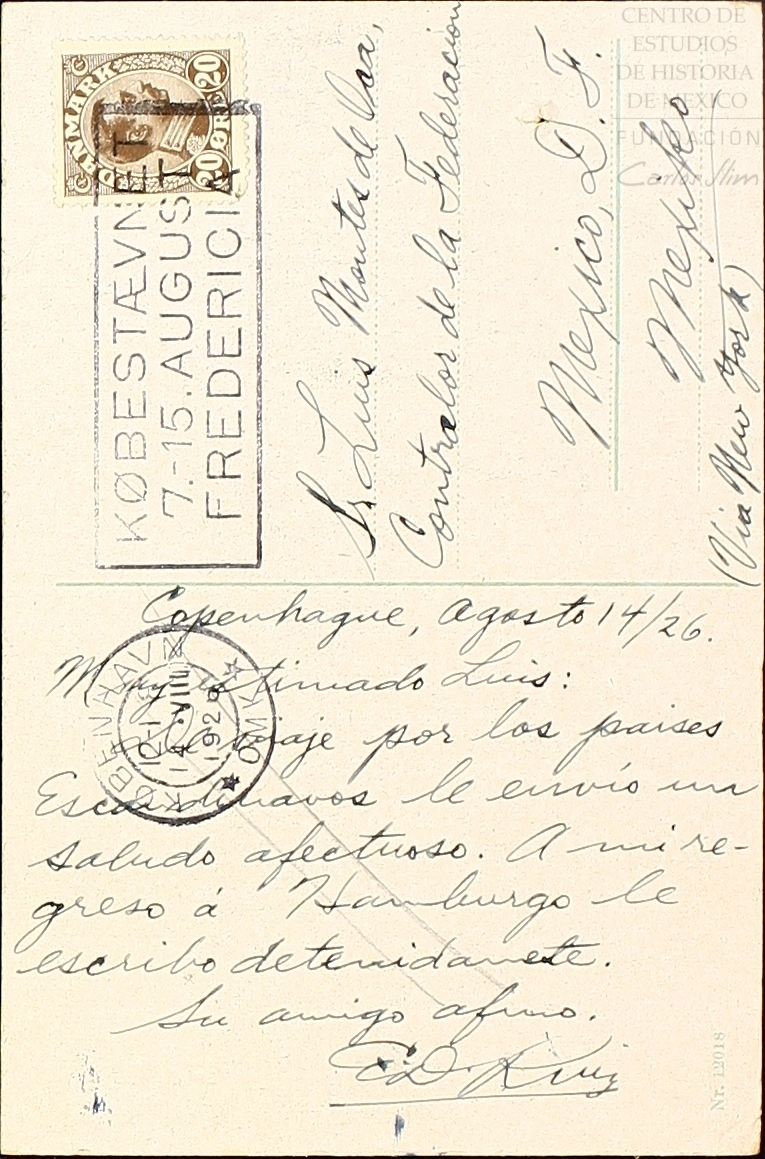 CENTRO DE
ESTUDIOS
DE HISTORIA
DE MEXICO
FUNDACIÓN
Carlos Slim
DANMARK
20 ØRE 20
KØBESTÆVNET
7.-15. AUGUST
FREDERICIA
Sr Luis Montes de Oca,
Contralor de la Federacion
Mexico, D. F.
Mexico
(Via New York)
Copenhague, Agosto 14/26.
Muy estimado Luis:
De viaje por los paises
Escandinavos le envío un
saludo afectuoso. A mi re-
greso á Hamburgo le
escribo detenidamete.
Su amigo afmo.
C.D. Ruiz
KØBENHAVN
14.VIII
192
OMK.
Nr. 12018